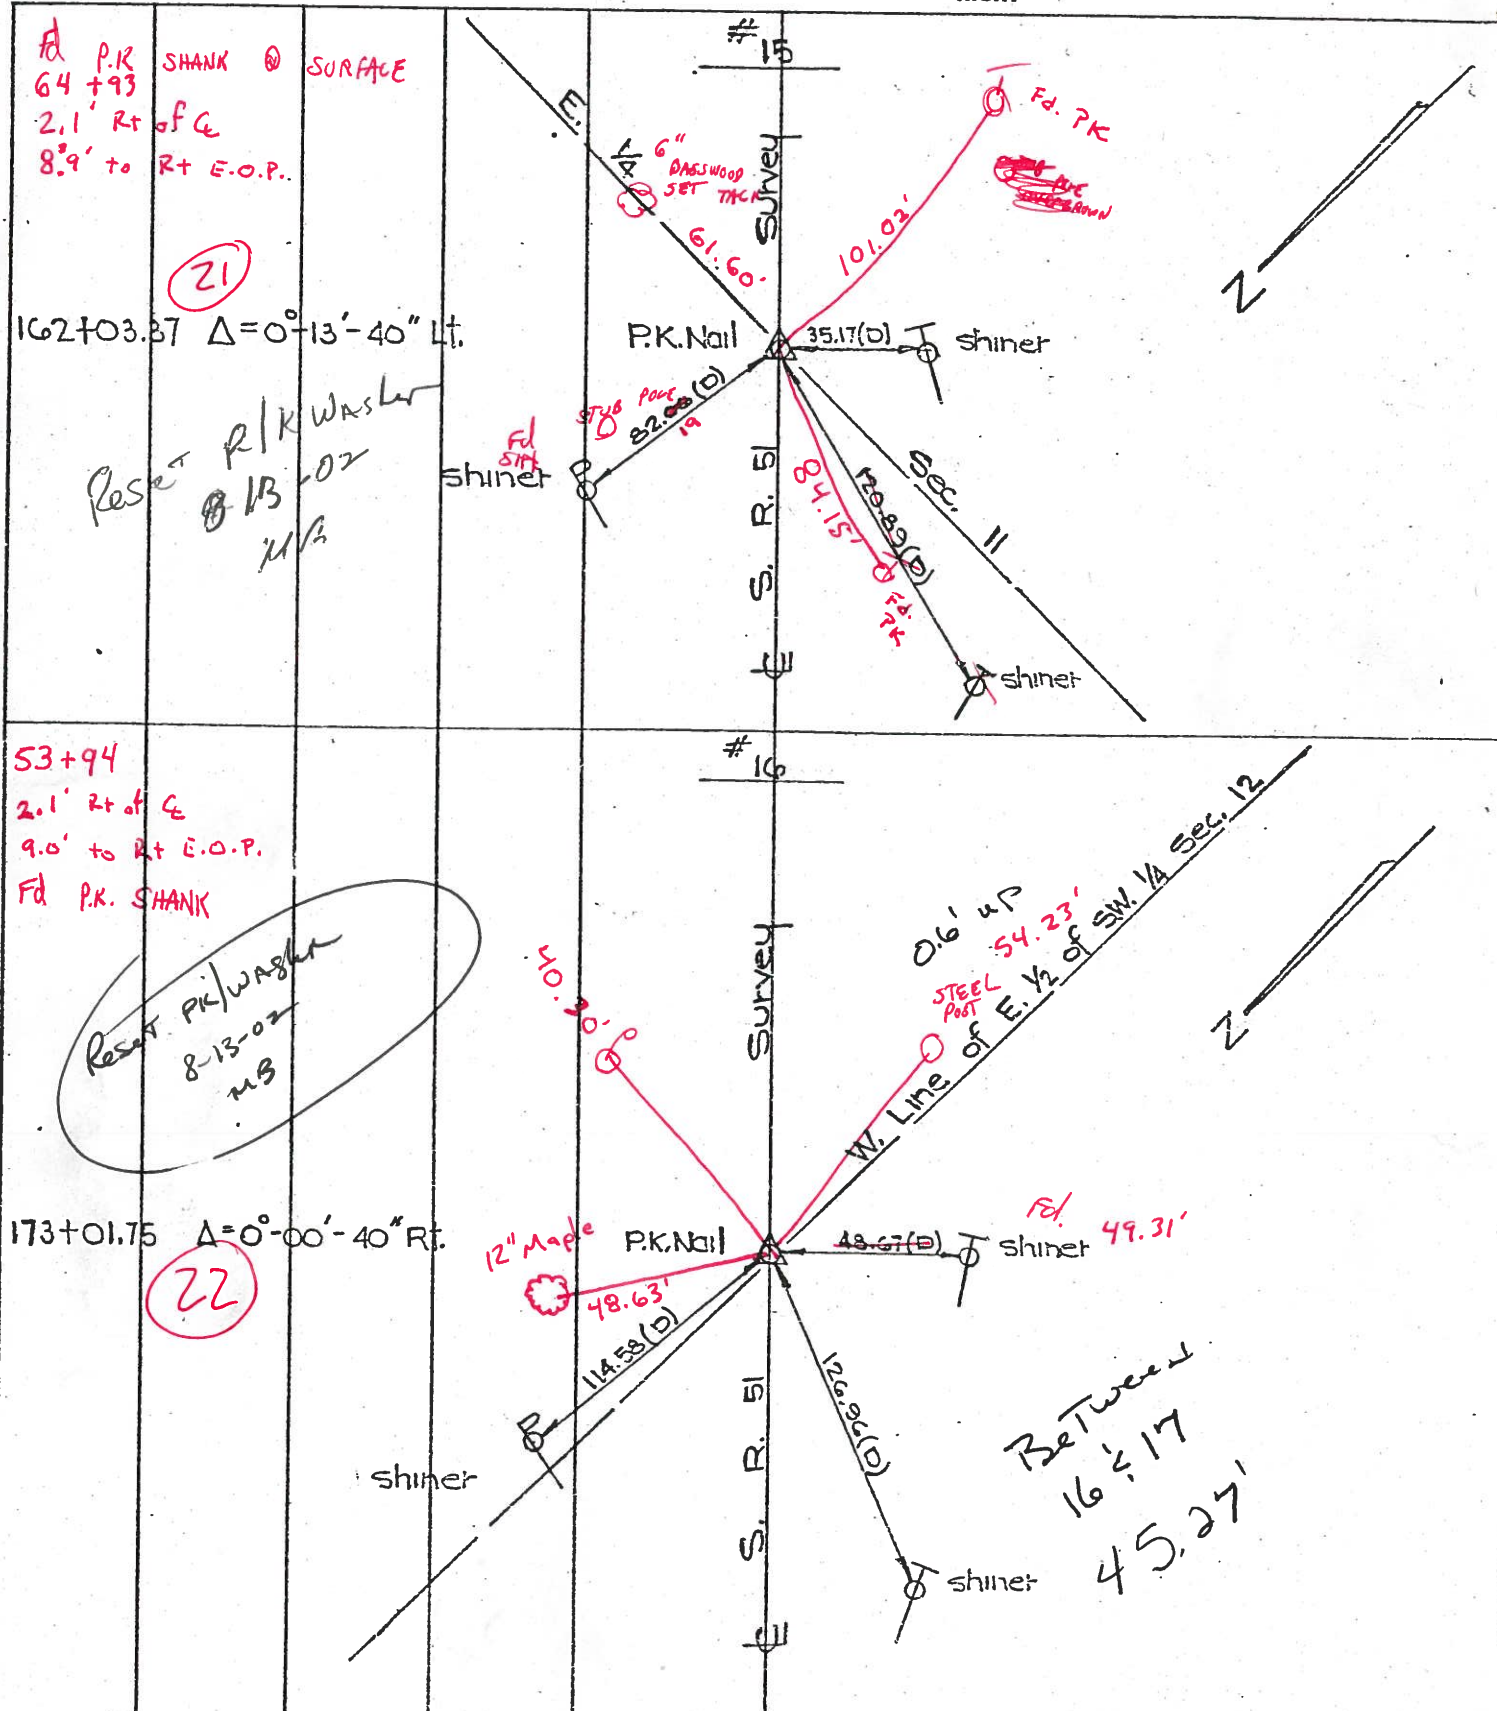 Fd P.K SHANK @ SURFACE
64+93
2.1' Rt of ℄
8.9' to Rt E.O.P.
21
162+03.87 Δ=0°-13'-40" Lt.
Reset P/K Washer
8/13-02
# 15
E. 1/4
6"
BASSWOOD
SET TACK
61.60'
Survey
101.02'
Fd. PK
OVERGROWN
N
P.K. Nail
35.17(D)
shiner
STUB POLE
82. (D)
19
Fd
shiner
S. R. 51
84.15'
Fd.
PK
120.89(D)
Sec. 11
shiner
℄
53+94
2.1' Rt of ℄
9.0' to Rt E.O.P.
Fd P.K. SHANK
Reset PK/Washer
8-13-02
MB
173+01.75 Δ=0°-00'-40" Rt.
22
# 16
Survey
40.30'
0.6' up
54.23'
STEEL
POST
W. Line of E. 1/2 of SW. 1/4 Sec. 12
N
12" Maple
48.63'
P.K. Nail
48.67(D)
shiner
Fd.
49.31'
114.58(D)
shiner
126.96(D)
shiner
S. R. 51
℄
Between
16 & 17
45.27'